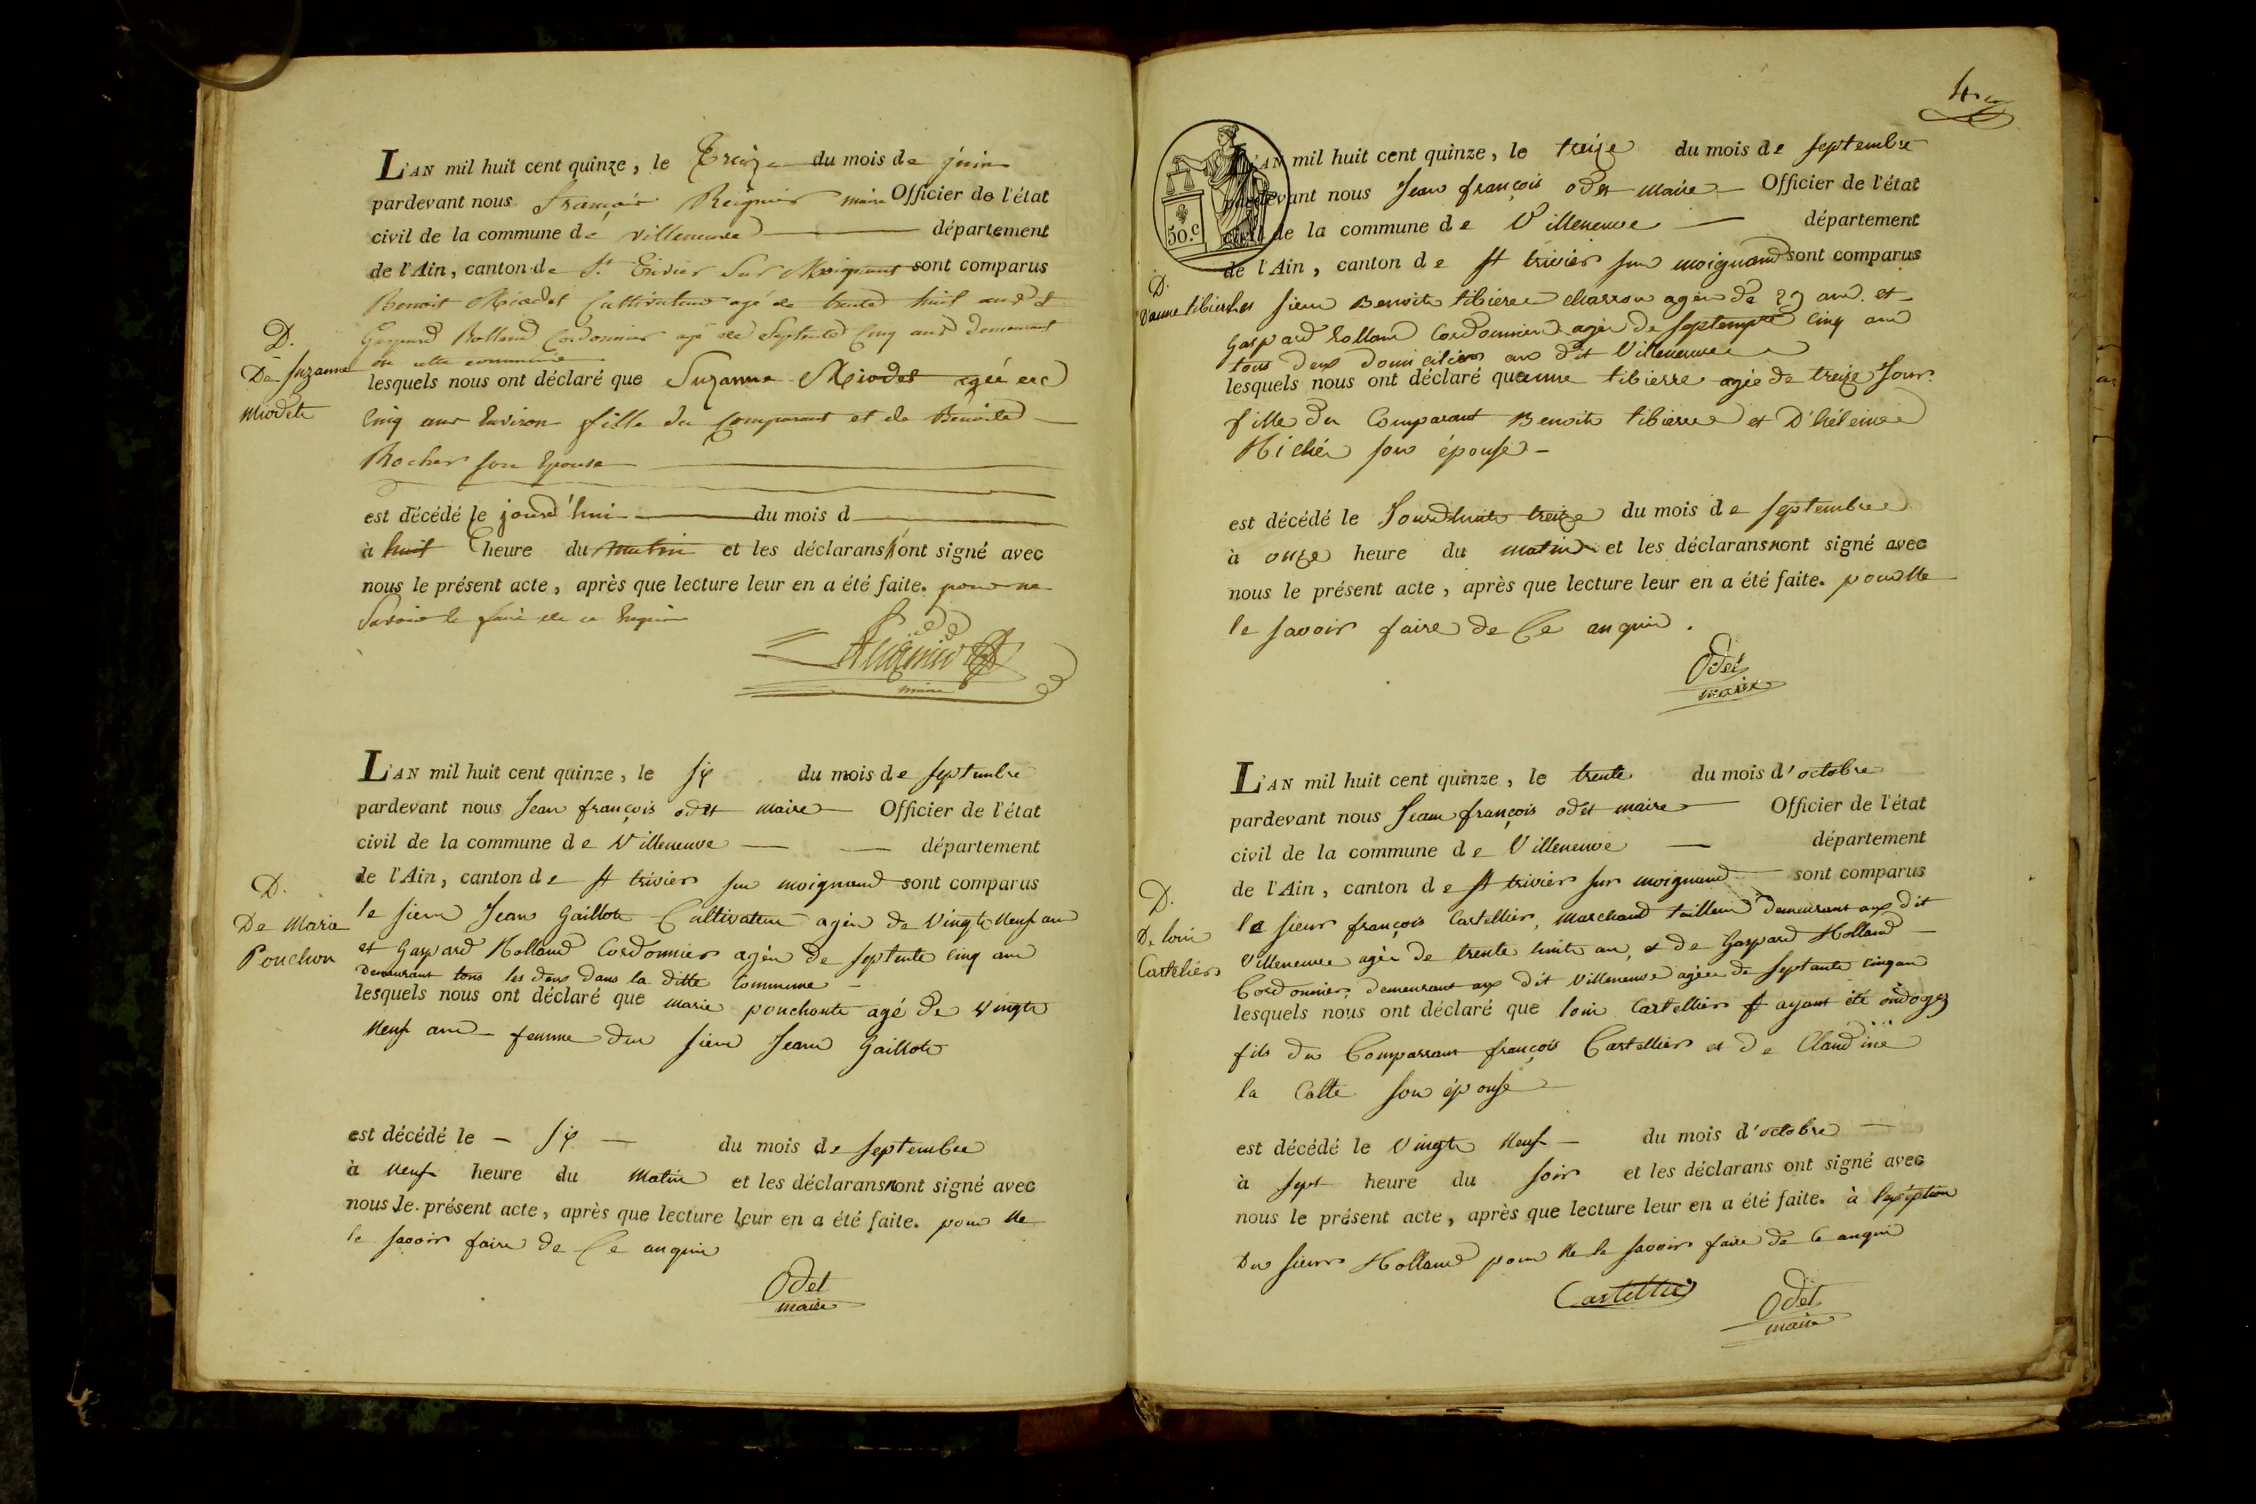 L'AN mil huit cent quinze, le Treize du mois de juin
pardevant nous François Reignier maire Officier de l'état
civil de la commune de villeneuve département
de l'Ain, canton de St Trivier Sur Moignans sont comparus
Benoit Miodet Cultivateur agé de trente huit ans et
Gaspard Rolland Cordonnier agé de Septente Cinq ans demeurant
en cette commune
D.
De Suzanne
Miodet
lesquels nous ont déclaré que Suzanne Miodet agée de
Cinq ans Environ fille du Comparant et de Benoite
Rocher son Epouse
est décédé le jourd'hui du mois d
à huit heure du matin et les déclarans n'ont signé avec
nous le présent acte, après que lecture leur en a été faite. pour ne
Savoir le faire de ce Enquis
maire
L'AN mil huit cent quinze, le six du mois de septembre
pardevant nous Jean françois odet maire Officier de l'état
civil de la commune de Villeneuve département
de l'Ain, canton de st trivier sur moignand sont comparus
D.
De Marie
Ponchon
le sieur Jean Gaillote Cultivateur agée de Vingte Neuf an
et Gaspard Rolland Cordonnier agée de septente cinq an
Demeurant tous les deux dans la ditte Commune
lesquels nous ont déclaré que marie ponchonte agé de vingte
Neuf an femme du sieur Jean Gaillote
est décédé le - six - du mois de septembre
à Neuf heure du matin et les déclarans nont signé avec
nous le présent acte, après que lecture leur en a été faite. pour Ne
le savoir faire de Ce anquis
Odet
maire
4
50.c
L'AN mil huit cent quinze, le treize du mois de septembre
pardevant nous Jean françois odet maire Officier de l'état
civil de la commune de Villeneuve département
de l'Ain, canton de st trivier sur moignand sont comparus
D.
D'anne tibierre
les sieur Benoite tibierre charron agée de 29 an et
Gaspard Rolland Cordonnier agée de septempte cinq an
tous deux domiciliers au dit Villeneuve
lesquels nous ont déclaré que anne tibierre agée de treize Jour
fille du Comparant Benoite tibierre et D'héleine
Richér son épouse -
est décédé le Jourdhuit treize du mois de septembre
à onze heure du matin et les déclarans nont signé avec
nous le présent acte, après que lecture leur en a été faite. pour Ne
le savoir faire de Ce anquis.
Odet
maire
L'AN mil huit cent quinze, le trente du mois d'octobre
pardevant nous Jean françois odet maire Officier de l'état
civil de la commune de Villeneuve département
de l'Ain, canton de st trivier sur moignand sont comparus
D.
De loui
Castelier
le sieur françois Castellier, marchand tailleur demeurant aux dit
Villeneuve agée de trente huite an, et de Gaspard Rolland
Cordonnier, demeurant aux dit Villeneuve agée de septante cinq an
lesquels nous ont déclaré que loui Castellier ayant été ondoyez
fils du Comparant françois Castellier et de Claudine
la Colte son épouse
est décédé le Vingte Neuf du mois d'octobre
à sept heure du soir et les déclarans ont signé avec
nous le présent acte, après que lecture leur en a été faite. à l'exséption
Du sieur Rolland pour Ne le savoir faire de Ce anquis
Castellie
Odet
maire